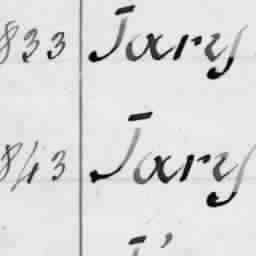 833 Tary
843 Tary